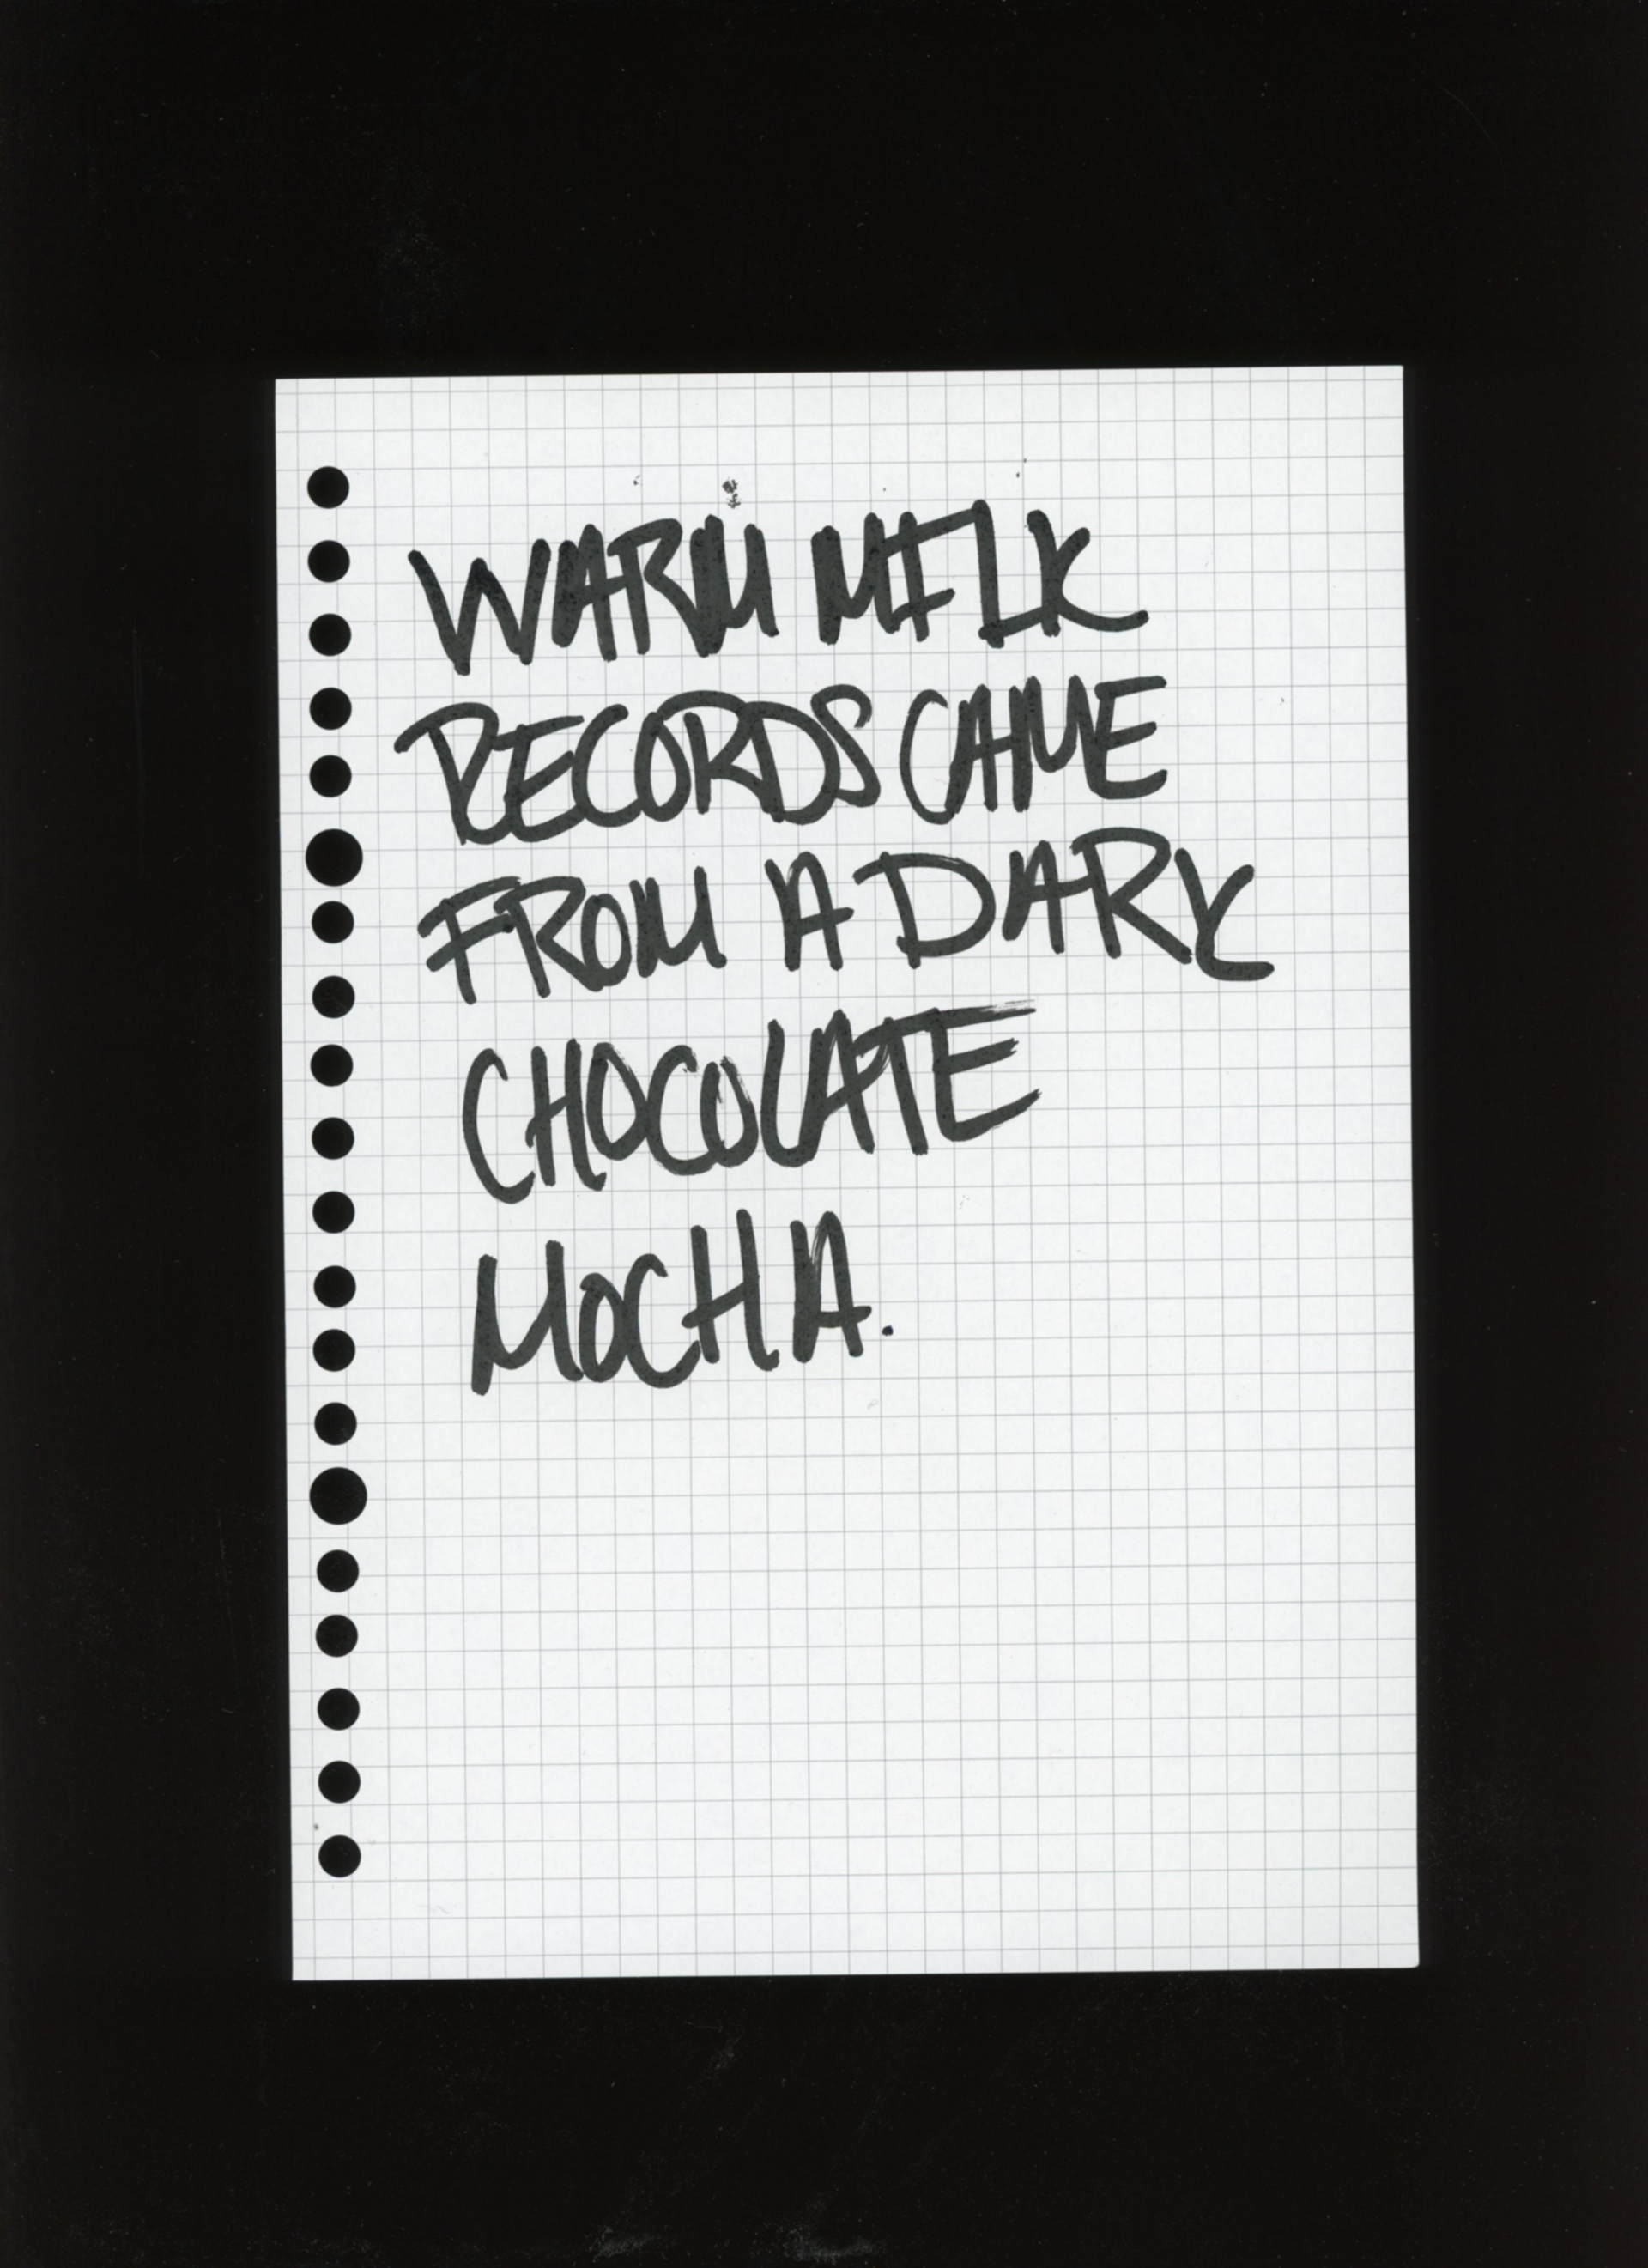 WARM MILK
RECORDS CAME
FROM A DARK
CHOCOLATE
MOCHA.